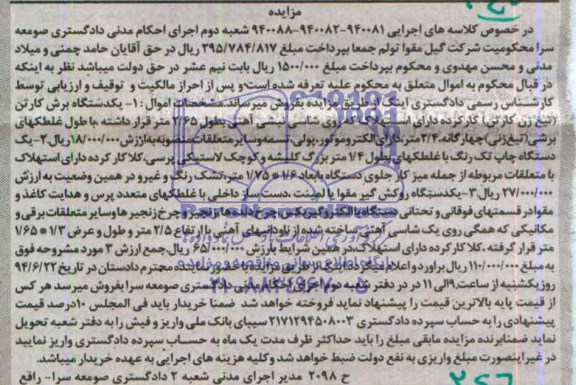 مزایده
در خصوص کلاسه های اجرایی ۹۴۰۰۸۱-۹۴۰۰۸۲-۹۴۰۰۸۸ شعبه دوم اجرای احکام مدنی دادگستری صومعه
سرا محکومیت شرکت گیل مقوا تولم جمعا بپرداخت مبلغ ۲۹۵/۷۸۴/۸۱۷ ریال در حق آقایان حامد چمنی و میلاد
مدنی و محسن مهدوی و محکوم بپرداخت مبلغ ۱۵۰۰/۰۰۰ ریال بابت نیم عشر در حق دولت میباشد نظر به اینکه
در قبال محکوم به اموال متعلق به محکوم علیه تعرفه شده است و پس از احراز مالکیت و توقیف و ارزیابی توسط
کارشناس رسمی دادگستری اینک از طریق مزایده بفروش میرساند مشخصات اموال: ۱- یکدستگاه برش کارتن
(تیغ زن کارتن) کارکرده دارای استهلاک روی شاسی نبشی آهنی بطول ۲/۶۵ متر قرار داشته، با طول غلطکهای
برشی (تیغ زنی) چهارگانه ۲/۴ متر دارای الکتروموتور، پولی، تسمه و سایر متعلقات منصوبه به ارزش ۱۸/۰۰۰/۰۰۰ ریال ۲- یک
دستگاه چاپ تک رنگ با غلطکهای بطول ۱/۴ متر بزرگ کلیشه و کوچک لاستیکی پرسی، کلا کار کرده دارای استهلاک
با متعلقات مربوطه از جمله میز کار جلوی دستگاه بابعاد ۱/۶ * ۱/۷۵ متر، تشک رنگ و غیرو در همین وضعیت به ارزش
۲۷/۰۰۰/۰۰۰ ریال ۳- یکدستگاه روکش گیر مقوا یا لمینت، دست ساز داخلی با غلطکهای متعدد پرس و هدایت کاغذ و
مقوا در قسمتهای فوقانی و تحتانی دستگاه با الکتروگیربکس، چرخ دنده ها، زنجیر و چرخ زنجیرها و سایر متعلقات برقی و
مکانیکی که همگی روی یک شاسی آهنی ساخته شده از ناودانیهای آهنی با ارتفاع ۲/۵ متر و طول و عرض ۱/۳ * ۱/۶۵
متر قرار گرفته، کلا کارکرده دارای استهلاک در همین شرایط بارزش ۶۵/۰۰۰/۰۰۰ ریال جمع ارزش ۳ مورد مشروحه فوق
به مبلغ ۱۱۰/۰۰۰/۰۰۰ ریال برآورد و اعلام میگردد از طریق مزایده با حضور نماینده محترم دادستان در تاریخ ۹۴/۶/۲۲
روز یکشنبه از ساعت ۹ الی ۱۱ در در دفتر شعبه دوم اجرای احکام مدنی دادگستری صومعه سرا بفروش میرسد هر کس
از قیمت پایه بالاترین قیمت را پیشنهاد نماید فروخته خواهد شد ضمنا خریدار باید فی المجلس ۱۰درصد قیمت
پیشنهادی را به حساب سپرده دادگستری ۲۱۷۱۲۹۴۵۰۸۰۰۳ سیبای بانک ملی واریز و فیش را به دفتر شعبه تحویل
نماید ضمنا برنده مزایده مابقی مبلغ را باید حداکثر ظرف مدت یک ماه به حساب سپرده دادگستری واریز نمایید
در غیر اینصورت مبلغ واریزی به نفع دولت ضبط خواهد شد و کلیه هزینه های اجرایی به عهده خریدار میباشد.
ح ۲۰۹۸ مدیر اجرای مدنی شعبه ۲ دادگستری صومعه سرا- رافع